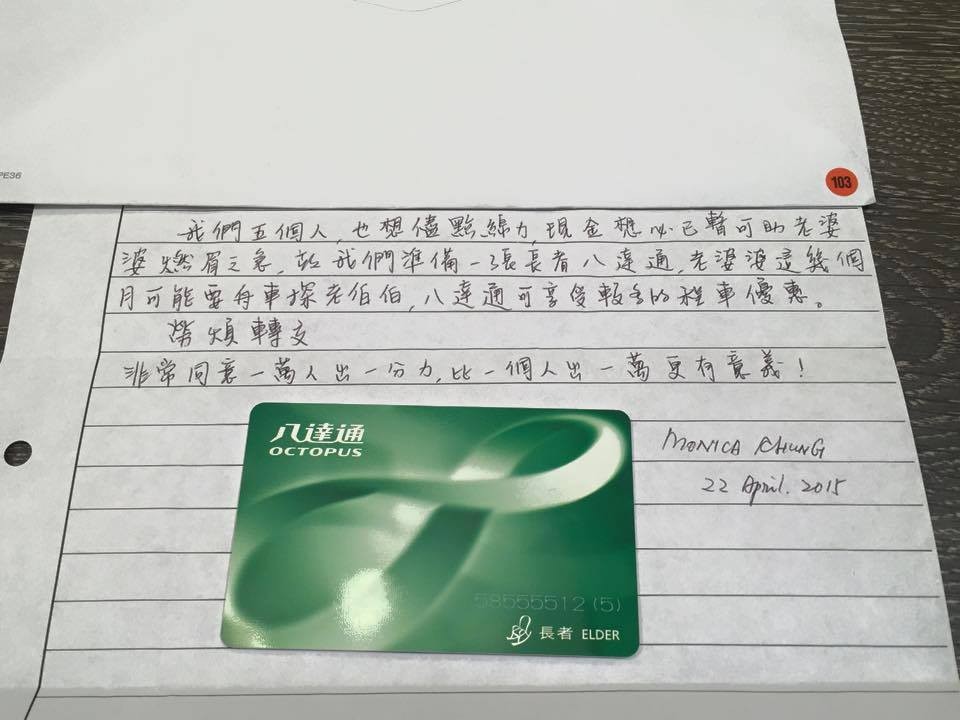 PE36
103
我們五個人，也想儘點綿力，現金想必已暫可助老婆
婆燃眉之急，故我們準備一張長者八達通，老婆婆這幾個
月可能要舟車探老伯伯，八達通可享受較多的程車優惠。
勞煩轉交
非常同意一萬人出一分力，比一個人出一萬更有意義！
八達通
OCTOPUS
MONICA CHUNG
22 April. 2015
58555512 (5)
長者 ELDER